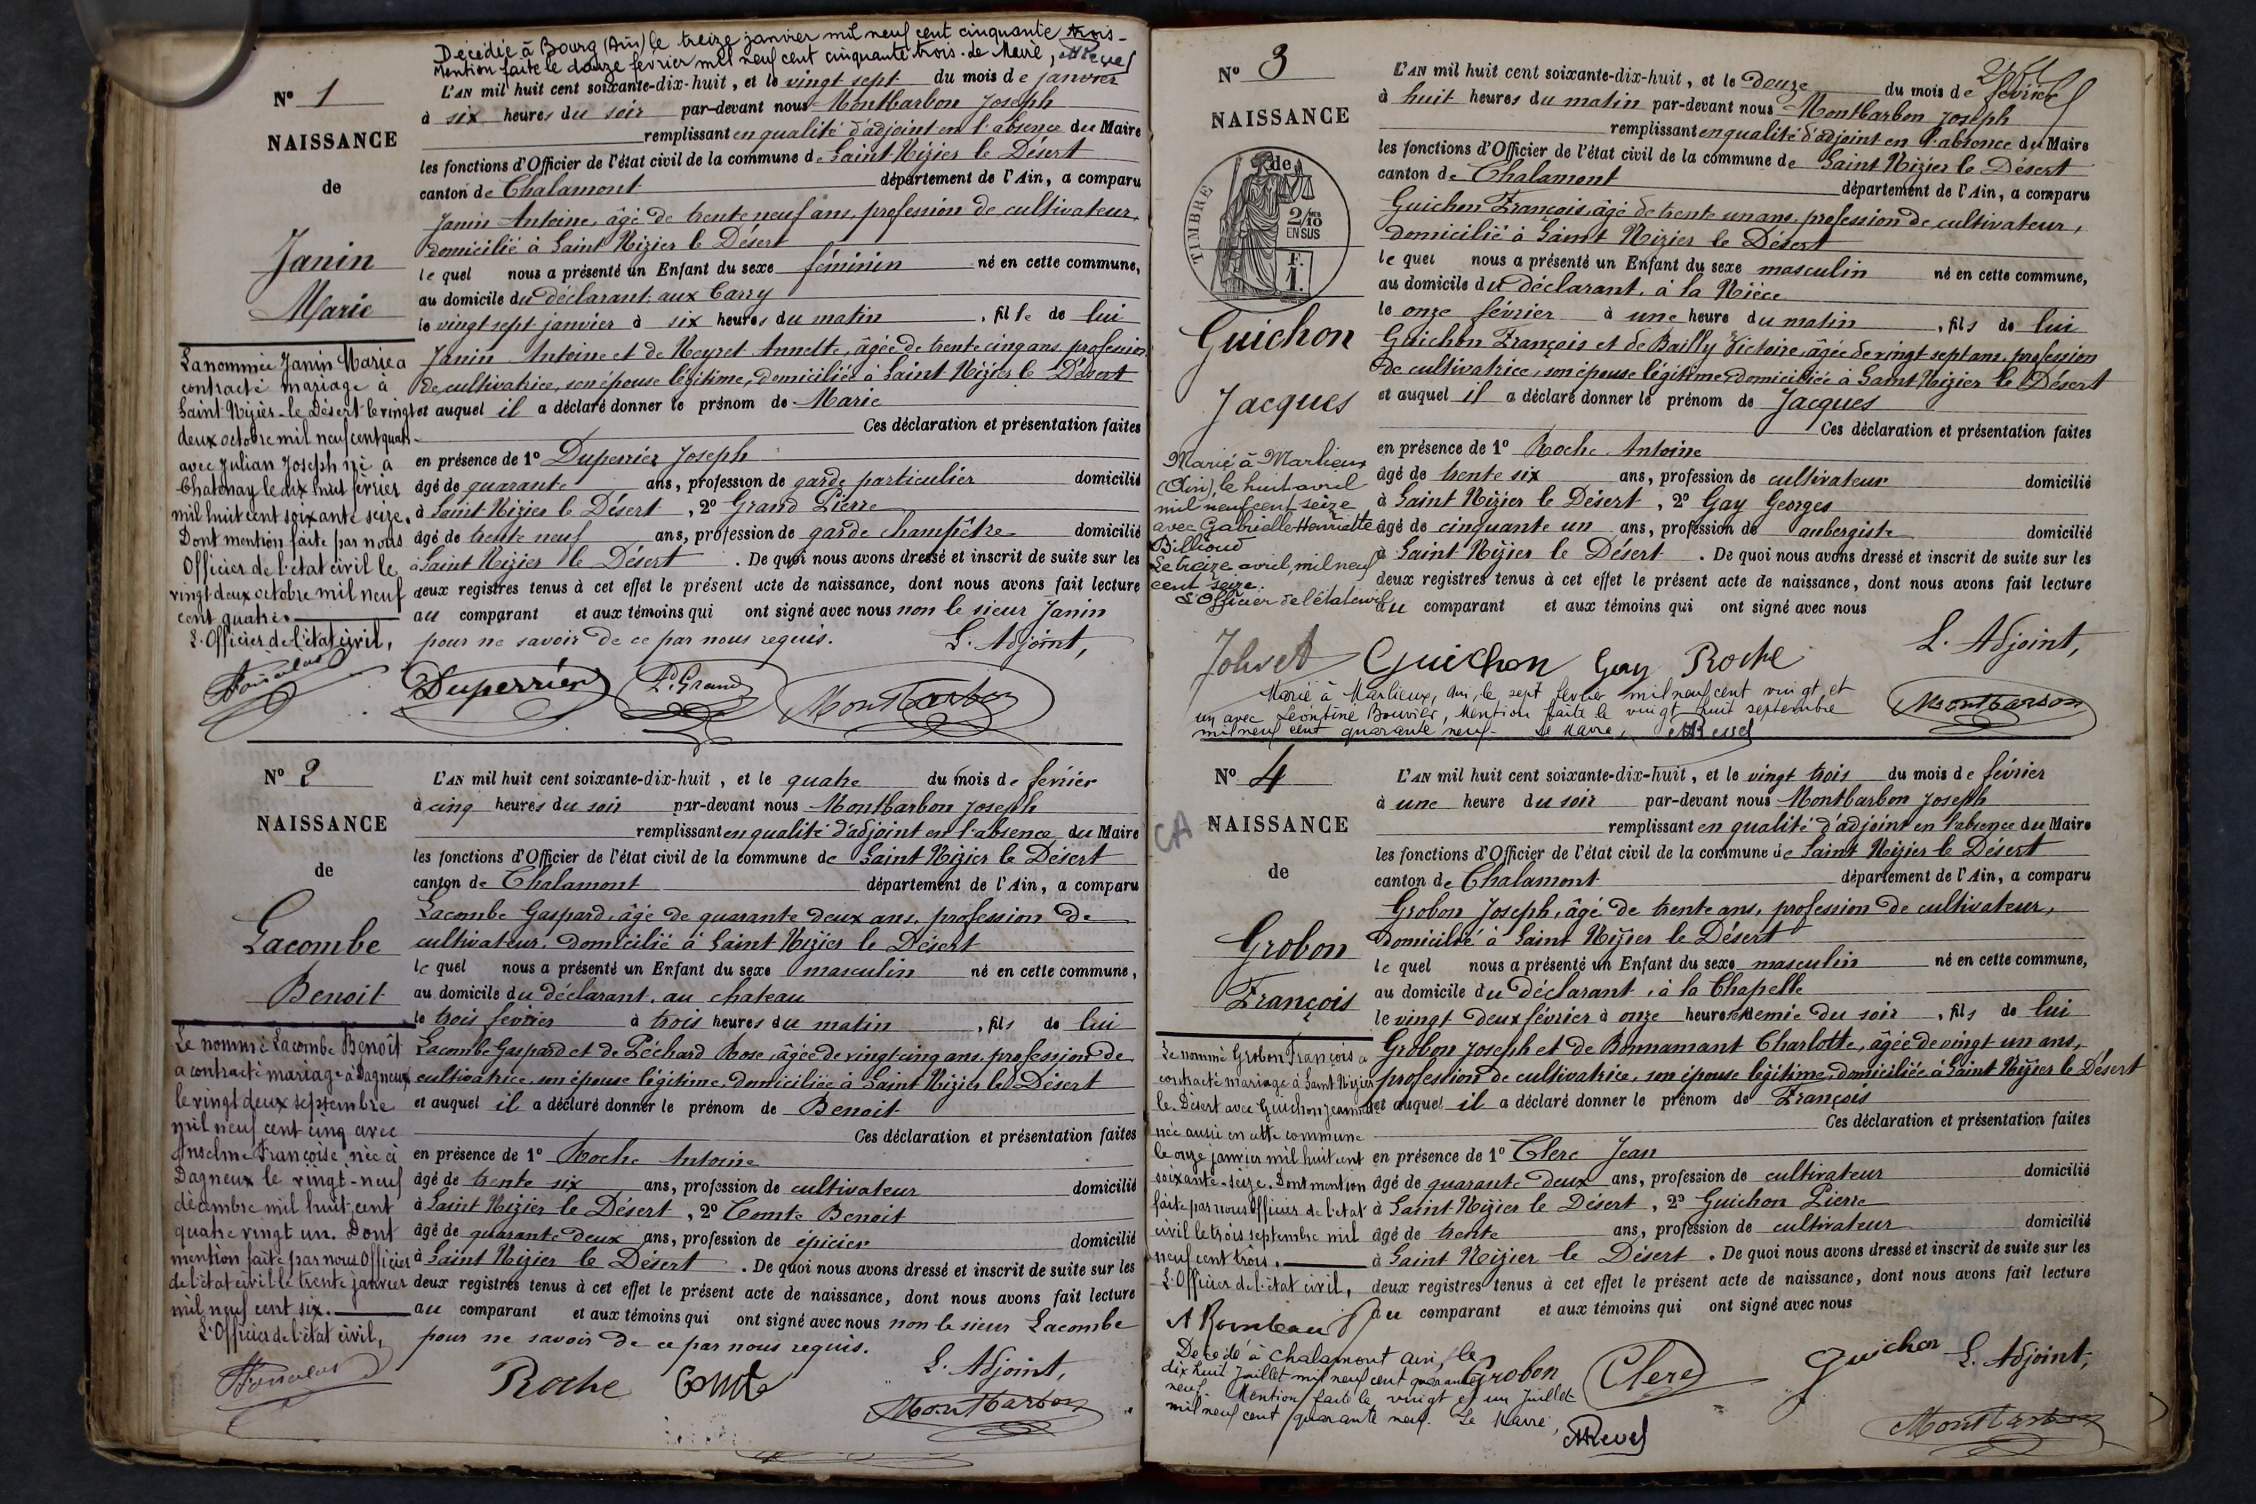 Décédée à Bourg (Ain) le treize janvier mil neuf cent cinquante trois -
Mention faite le douze février mil neuf cent cinquante trois. Le Maire,
N° 1
NAISSANCE
de
Janin
Marie
L'AN mil huit cent soixante-dix-huit, et le vingt sept du mois de janvier
à six heures du soir par-devant nous Montbarbon Joseph
remplissant en qualité d'adjoint en l'absence du Maire
les fonctions d'Officier de l'état civil de la commune de Saint Nizier le Désert
canton de Chalamont département de l'Ain, a comparu
Janin Antoine, âgé de trente neuf ans, profession de cultivateur,
domicilié à Saint Nizier le Désert
le quel nous a présenté un Enfant du sexe féminin né en cette commune,
au domicile du déclarant, aux Carry
le vingt sept janvier à six heures du matin, fille de lui
Janin Antoine et de Neyret Annette, âgée de trente cinq ans, profession
de cultivatrice, son épouse légitime, domiciliée à Saint Nizier le Désert
et auquel il a déclaré donner le prénom de Marie
Ces déclaration et présentation faites
en présence de 1° Duperrier Joseph
âgé de quarante ans, profession de garde particulier domicilié
à Saint Nizier le Désert, 2° Grand Pierre
âgé de trente neuf ans, profession de garde champêtre domicilié
à Saint Nizier le Désert. De quoi nous avons dressé et inscrit de suite sur les
deux registres tenus à cet effet le présent acte de naissance, dont nous avons fait lecture
au comparant et aux témoins qui ont signé avec nous non le sieur Janin
pour ne savoir de ce par nous requis. L'Adjoint,
La nommée Janin Marie a
contracté mariage à
Saint Nizier-le Désert le vingt
deux octobre mil neuf cent quatre
avec Julian Joseph né à
Chatenay le dix huit février
mil huit cent soixante seize.
Dont mention faite par nous
Officier de l'état civil le
vingt deux octobre mil neuf
cent quatre.
L'Officier de l'état civil,
Duperrier P. Grand Montbarbon
N° 2
NAISSANCE
de
Lacombe
Benoit
L'AN mil huit cent soixante-dix-huit, et le quatre du mois de février
à cinq heures du soir par-devant nous Montbarbon Joseph
remplissant en qualité d'adjoint en l'absence du Maire
les fonctions d'Officier de l'état civil de la commune de Saint Nizier le Désert
canton de Chalamont département de l'Ain, a comparu
Lacombe Gaspard, âgé de quarante deux ans, profession de
cultivateur, domicilié à Saint Nizier le Désert
le quel nous a présenté un Enfant du sexe masculin né en cette commune,
au domicile du déclarant, au chateau
le trois février à trois heures du matin, fils de lui
Lacombe Gaspard et de Péchard Rose, âgée de vingt cinq ans, profession de
cultivatrice, son épouse légitime, domiciliée à Saint Nizier le Désert
et auquel il a déclaré donner le prénom de Benoit
Ces déclaration et présentation faites
en présence de 1° Roche Antoine
âgé de trente six ans, profession de cultivateur domicilié
à Saint Nizier le Désert, 2° Comte Benoit
âgé de quarante deux ans, profession de épicier domicilié
à Saint Nizier le Désert. De quoi nous avons dressé et inscrit de suite sur les
deux registres tenus à cet effet le présent acte de naissance, dont nous avons fait lecture
au comparant et aux témoins qui ont signé avec nous non le sieur Lacombe
pour ne savoir de ce par nous requis.
L'Adjoint,
Le nommé Lacombe Benoît
a contracté mariage à Dagneux
le vingt deux septembre
mil neuf cent cinq avec
Anselme Françoise née à
Dagneux le vingt-neuf
décembre mil huit cent
quatre vingt un. Dont
mention faite par nous Officier
de l'état civil le trente janvier
mil neuf cent six.
L'Officier de l'état civil,
Roche Comte Montbarbon
N° 3
NAISSANCE
de
TIMBRE
2/10
EN SUS
F.
1.
Guichon
Jacques
L'AN mil huit cent soixante-dix-huit, et le douze du mois de février
à huit heures du matin par-devant nous Montbarbon Joseph
remplissant en qualité d'adjoint en l'absence du Maire
les fonctions d'Officier de l'état civil de la commune de Saint Nizier le Désert
canton de Chalamont département de l'Ain, a comparu
Guichon François, âgé de trente un ans, profession de cultivateur,
domicilié à Saint Nizier le Désert
le quel nous a présenté un Enfant du sexe masculin né en cette commune,
au domicile du déclarant, à la Nièce
le onze février à une heure du matin, fils de lui
Guichon François et de Bailly Victoire, âgée de vingt sept ans, profession
de cultivatrice, son épouse légitime, domiciliée à Saint Nizier le Désert
et auquel il a déclaré donner le prénom de Jacques
Ces déclaration et présentation faites
en présence de 1° Roche Antoine
âgé de trente six ans, profession de cultivateur domicilié
à Saint Nizier le Désert, 2° Gay Georges
âgé de cinquante un ans, profession de aubergiste domicilié
à Saint Nizier le Désert. De quoi nous avons dressé et inscrit de suite sur les
deux registres tenus à cet effet le présent acte de naissance, dont nous avons fait lecture
au comparant et aux témoins qui ont signé avec nous
L'Adjoint,
Marié à Marlieux
(Ain), le huit avril
mil neuf cent seize
avec Gabrielle Henriette
Billioud
Le treize avril, mil neuf
cent seize.
L'Officier de l'état civil
Jolivet Guichon Gay Roche
Montbarbon
Marié à Marlieux, Ain, le sept février mil neuf cent vingt et
un avec Léontine Bouvier, Mention faite le vingt huit septembre
mil neuf cent quarante neuf. Le Maire,
N° 4
CA
NAISSANCE
de
Grobon
François
L'AN mil huit cent soixante-dix-huit, et le vingt trois du mois de février
à une heure du soir par-devant nous Montbarbon Joseph
remplissant en qualité d'adjoint en l'absence du Maire
les fonctions d'Officier de l'état civil de la commune de Saint Nizier le Désert
canton de Chalamont département de l'Ain, a comparu
Grobon Joseph, âgé de trente ans, profession de cultivateur,
domicilié à Saint Nizier le Désert
le quel nous a présenté un Enfant du sexe masculin né en cette commune,
au domicile du déclarant, à la Chapelle
le vingt deux février à onze heures & demie du soir, fils de lui
Grobon Joseph et de Bonnamant Charlotte, âgée de vingt un ans,
profession de cultivatrice, son épouse légitime, domiciliée à Saint Nizier le Désert
et auquel il a déclaré donner le prénom de François
Ces déclaration et présentation faites
en présence de 1° Clerc Jean
âgé de quarante deux ans, profession de cultivateur domicilié
à Saint Nizier le Désert, 2° Guichon Pierre
âgé de trente ans, profession de cultivateur domicilié
à Saint Nizier le Désert. De quoi nous avons dressé et inscrit de suite sur les
deux registres tenus à cet effet le présent acte de naissance, dont nous avons fait lecture
au comparant et aux témoins qui ont signé avec nous
Le nommé Grobon François a
contracté mariage à Saint Nizier
le Désert avec Guichon Jeanne
née aussi en cette commune
le onze janvier mil huit cent
soixante-seize. Dont mention
faite par nous Officier de l'état
civil le trois septembre mil
neuf cent trois.
L'Officier de l'état civil,
Décédé à Chalamont Ain, le
dix huit Juillet mil neuf cent quarante
neuf. Mention faite le vingt et un Juillet
mil neuf cent quarante neuf. Le Maire,
Grobon Clerc Guichon L'Adjoint,
Montbarbon